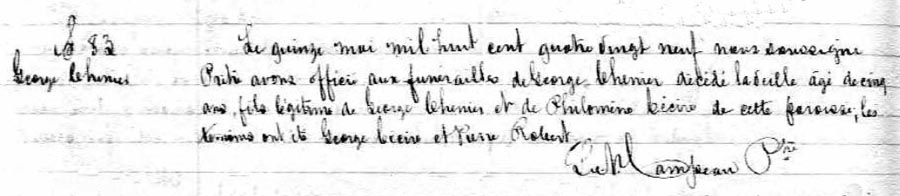 S 83
George Chenier
Le quinze mai mil huit cent quatre vingt neuf nous soussigné
Prêtre avons officié aux funerailles de George Chenier décédé la veille âgé de cinq
ans, fils légitime de George Chenier et de Philomène Cécire de cette paroisse, les
témoins ont été George Cécire et Pierre Robert
Ptre